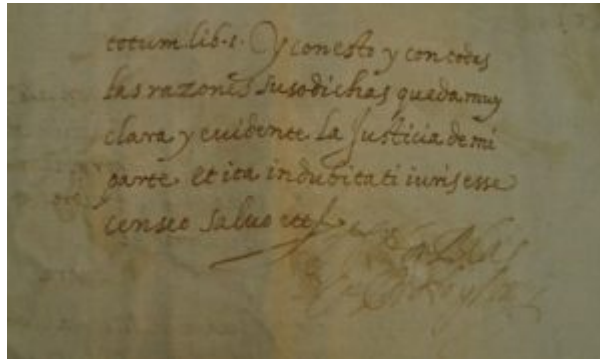 totum. lib. 1. Y con esto y con todas
las razones susodichas queda muy
clara y euidente la Justicia de mi
parte. et ita indubitati iuris esse
censeo saluo etc